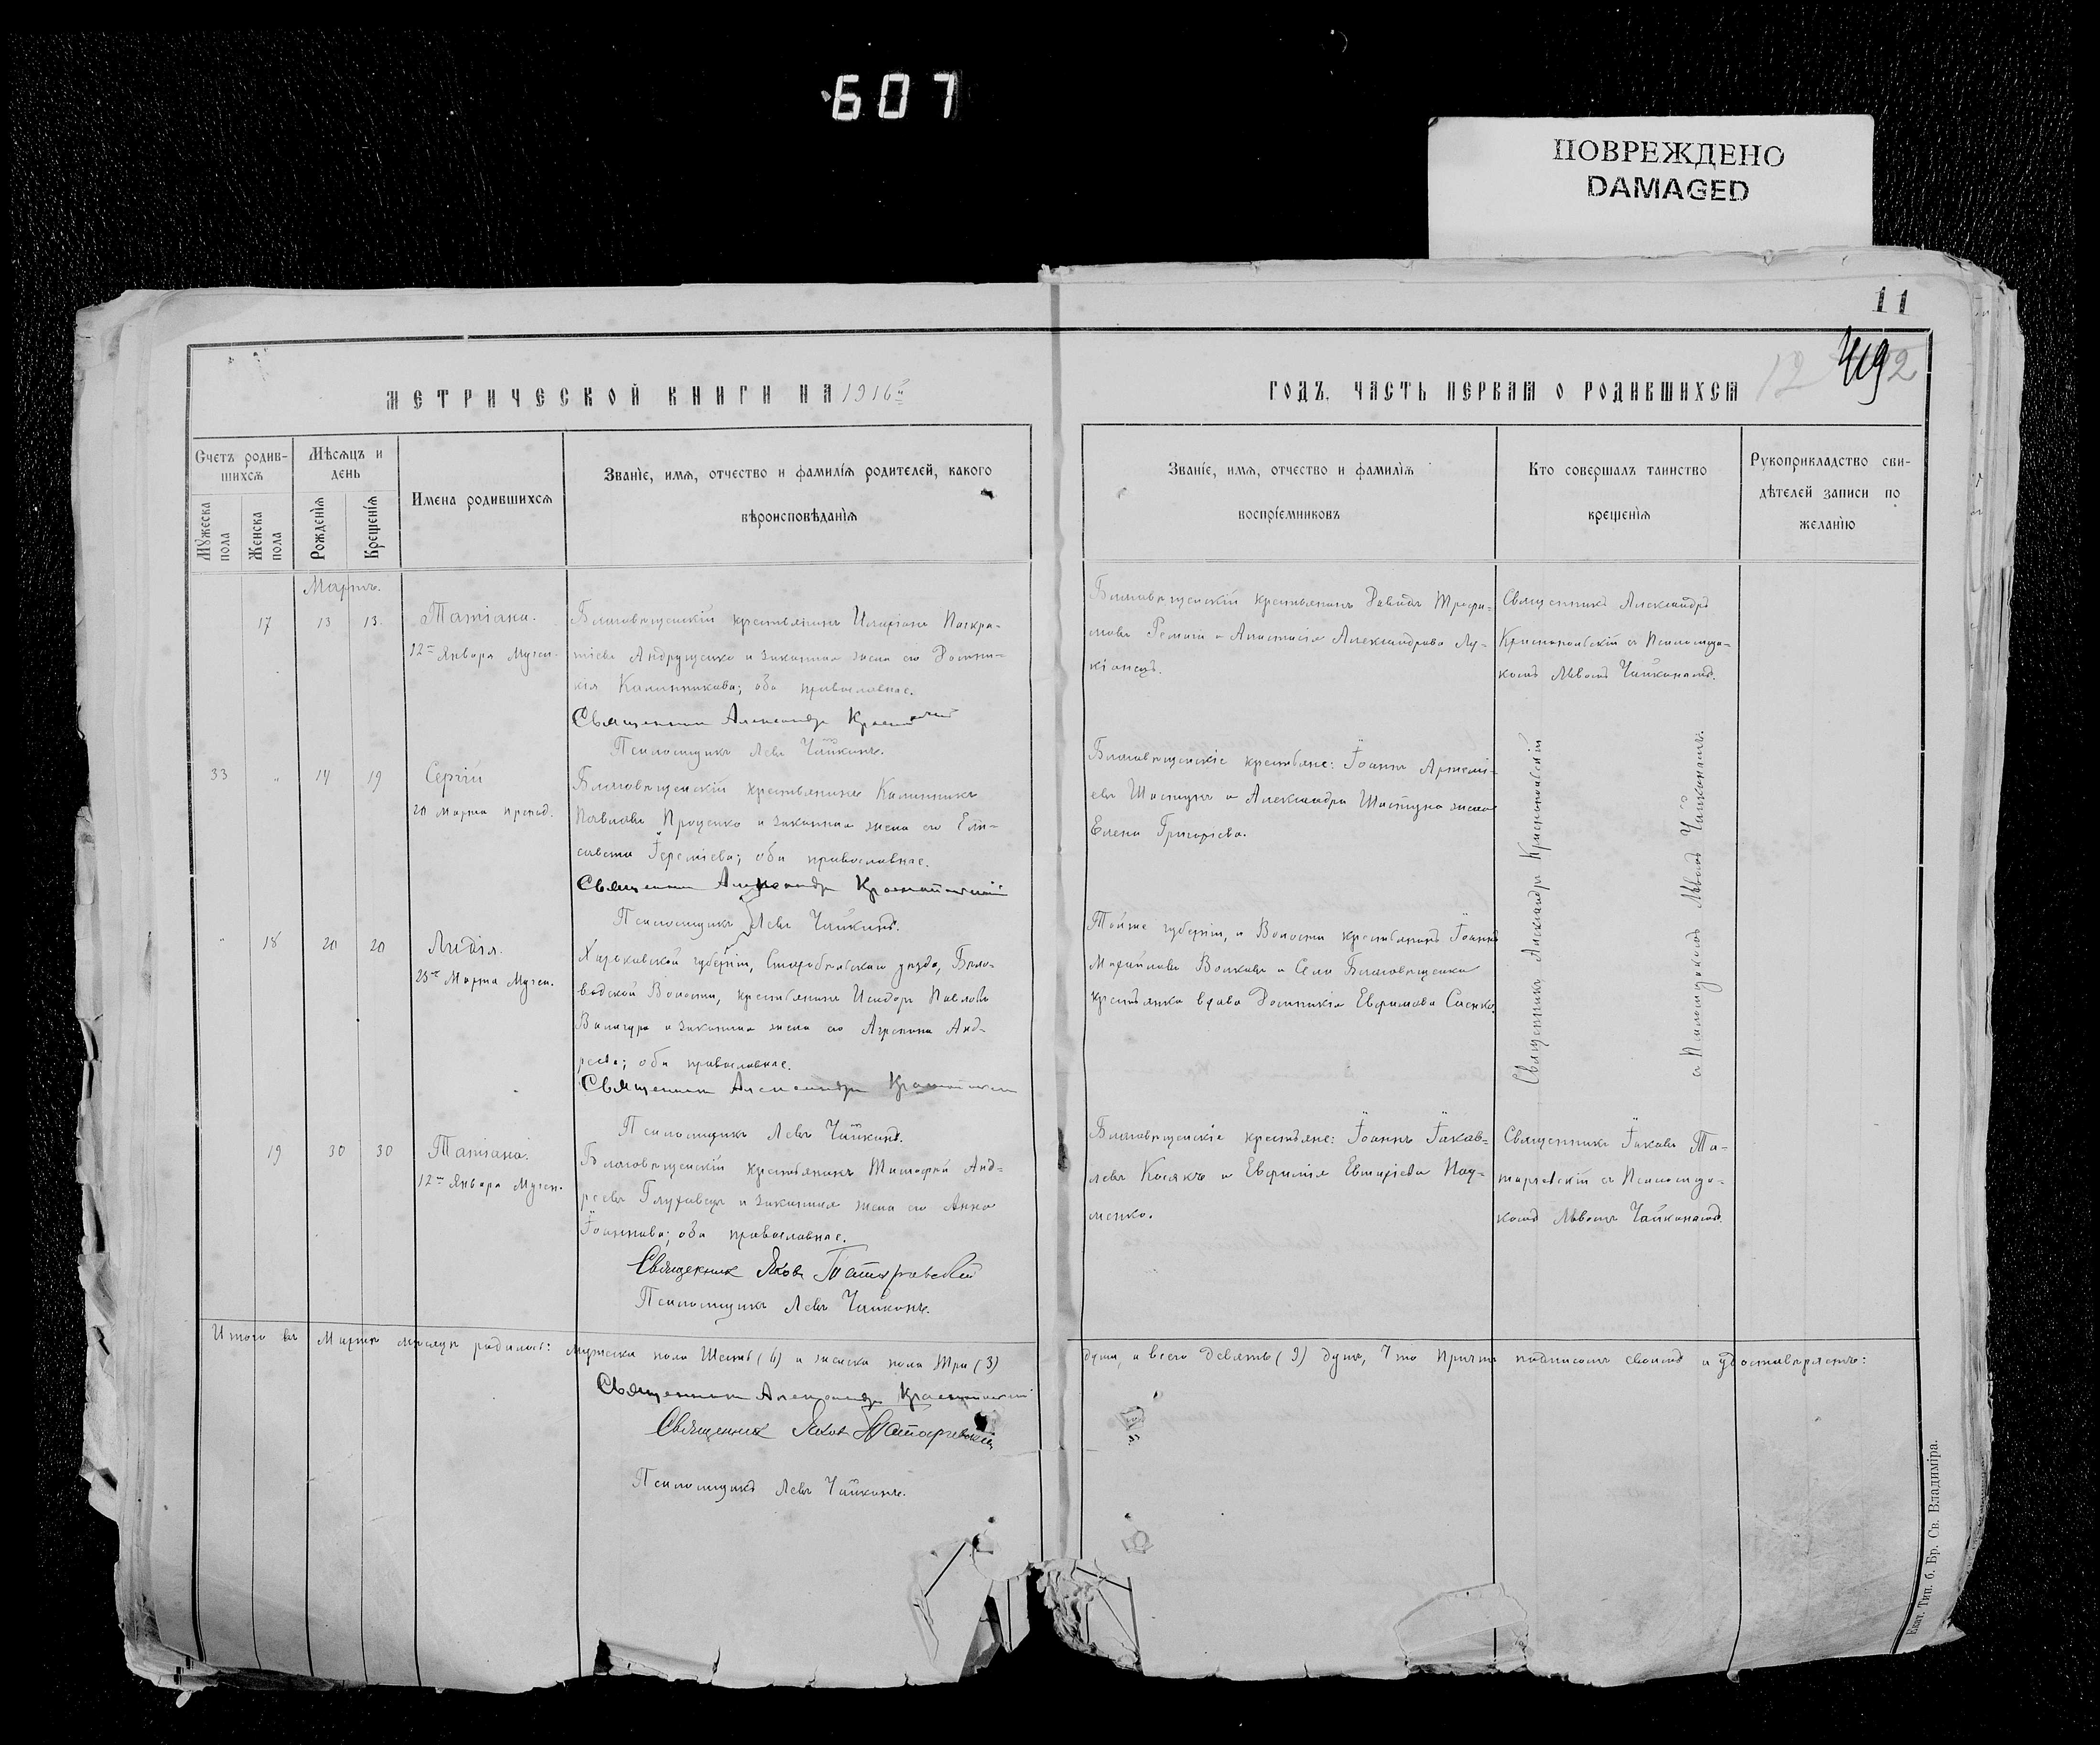 607
ПОВРЕЖДЕНО
DAMAGED
11
МЕТРИЧЕСКОЙ КНИГИ НА 1916й
ГОДЪ, ЧАСТЬ ПЕРВАЯ О РОДИВШИХСЯ
12
Счетъ родив-
шихся
Мужеска
пола
Женска
пола
Мѣсяцъ и
день
Рожденія
Крещенія
Имена родившихся
Званіе, имя, отчество и фамилія родителей, какого
вѣроисповѣданія
Званіе, имя, отчество и фамилія
воспріемниковъ
Кто совершалъ таинство
крещенія
Рукоприкладство сви-
дѣтелей записи по
желанію
Мартъ.
17
13
13.
Татіана.
12го Января Мучен.
Благовѣщенскій крестьянинъ Иларіонъ Панкра-
тіевъ Андрущенко и законная жена его Домни-
кія Калинникова; оба православные.
Священникъ Александръ
Псаломщикъ Левъ Чайкинъ.
Благовѣщенскій крестьянинъ Давидъ Трофи-
мовъ и Анастасія Александрова Лу-
кіанецъ.
Священникъ Александръ
Краснопольскій съ Псаломщи-
комъ Львомъ Чайкинымъ.
33
„
14
19
Сергій
20 Марта препод.
Благовѣщенскій крестьянинъ Калинникъ
Павловъ Проценко и законная жена его Ели-
савета Іереміева; оба православные.
Священникъ Александръ Краснопольскій
Псаломщикъ Левъ Чайкинъ.
Благовѣщенскіе крестьяне: Іоаннъ Артемі-
евъ Шастунъ и Александра Шастуна жена
Елена Григоріева.
Священникъ Александръ Краснопольскій
съ Псаломщикомъ Львомъ Чайкинымъ.
„
18
20
20
Лидія.
23го Марта Мучен.
Харьковской губерніи, Старобѣльскаго уѣзда, Бѣло-
водской Волости, крестьянинъ Исидоръ Павловъ
и законная жена его Агрепина Анд-
реева; оба православные.
Священникъ Александръ Краснопольскій
Псаломщикъ Левъ Чайкинъ.
Тойже губерніи, и Волости крестьянинъ Іоаннъ
Михайловъ Волковъ и Села Благовѣщенки
крестьянка вдова Домникія Евфимова Саенко.
19
30
30
Татіана.
12го Января Мучен.
Благовѣщенскій крестьянинъ Тимофей Анд-
реевъ Глуховецъ и законная жена его Анна
Іоаннова; оба православные.
Священник Яков Татаревский
Псаломщикъ Левъ Чайкинъ.
Благовѣщенскіе крестьяне: Іоаннъ Іаков-
левъ Косякъ и Евфимія Евтихіева Нау-
менко.
Священникъ Іаковъ Та-
таревскій съ Псаломщи-
комъ Львомъ Чайкинымъ.
Итого въ Мартѣ мѣсяцѣ родилось: мужеска пола Шесть (6) и женска пола три (3)
души, а всего девять (9) душъ, что Причтъ подписомъ своимъ и удостовѣряетъ:
Священникъ Александръ Краснопольскій
Священник Яков Татаревский
Псаломщикъ Левъ Чайкинъ.
Екат. Тип. б. Бр. Св. Владиміра.